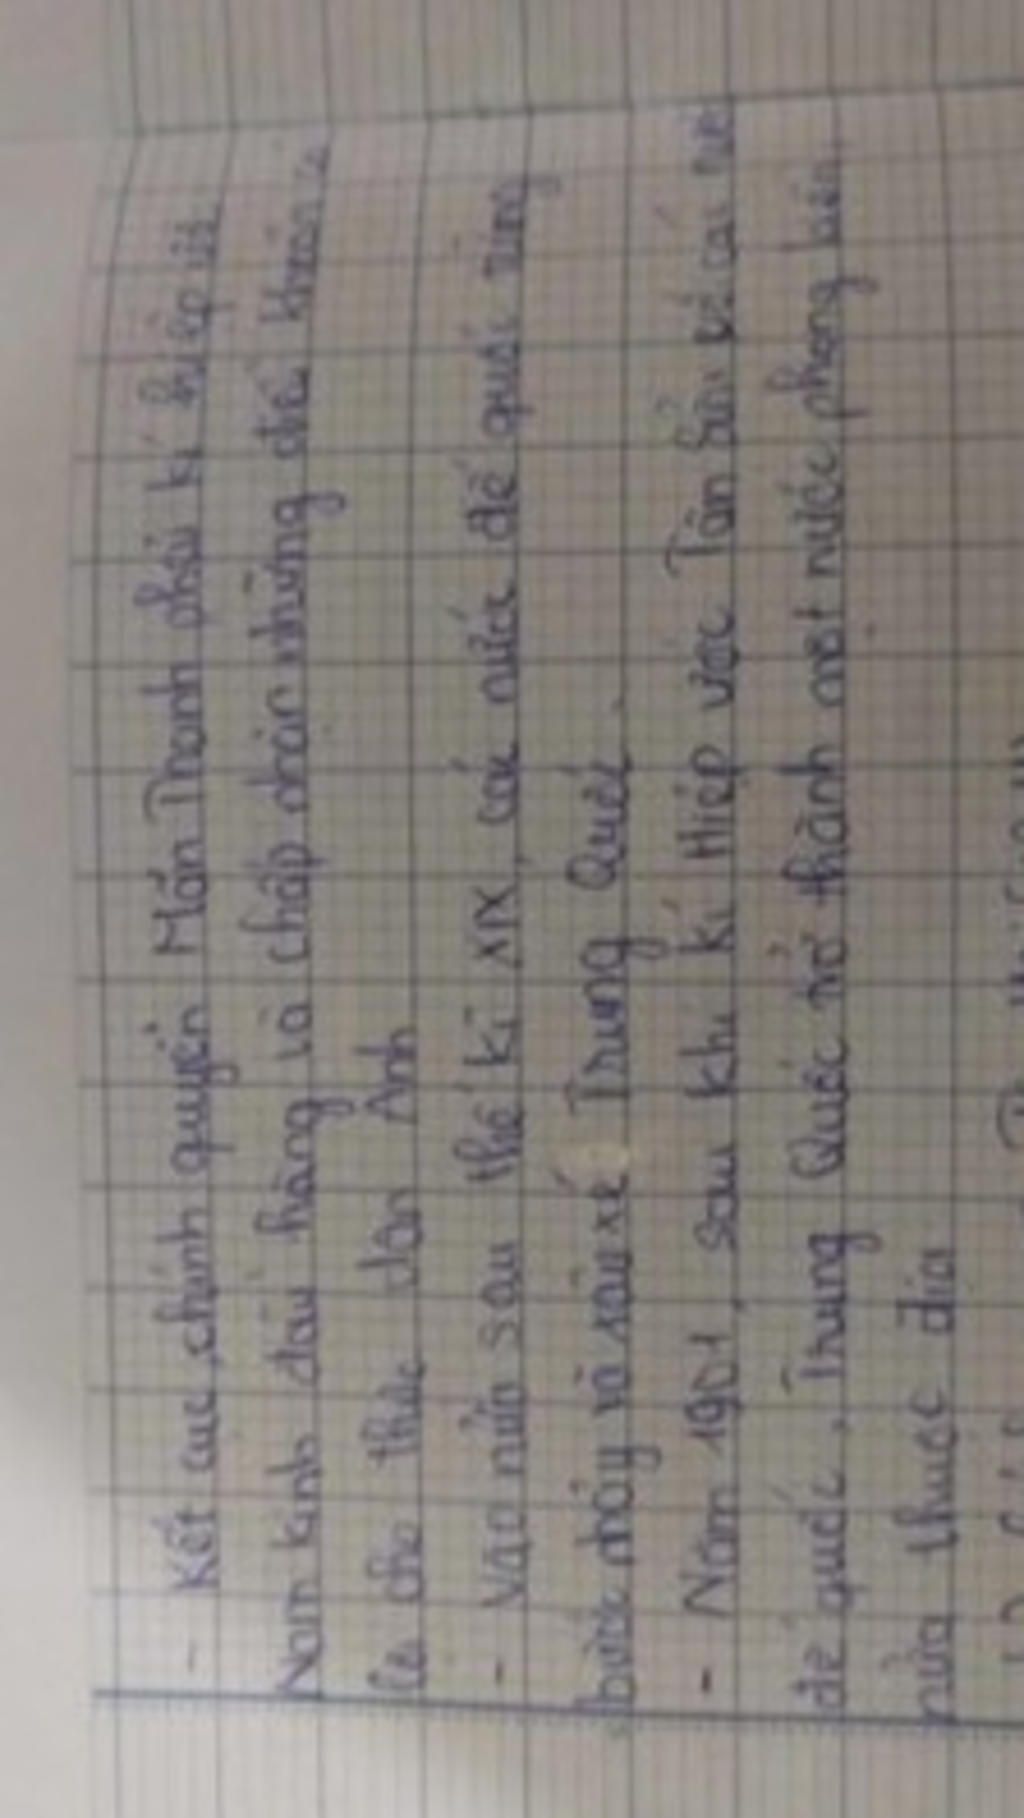 - Kết cục, chính quyền Mãn Thanh phải kí hiệp ước
Nam kinh đầu hàng và chấp nhận những điều khoản
có cho thực dân Anh
- Vào nửa sau thế kỉ XIX, các nước đế quốc từng
bước nhảy vào xâu xé Trung Quốc.
- Năm 1901, sau khi kí Hiệp ước Tân Sửu với các nước
đế quốc, Trung Quốc trở thành một nước phong kiến
nửa thuộc địa